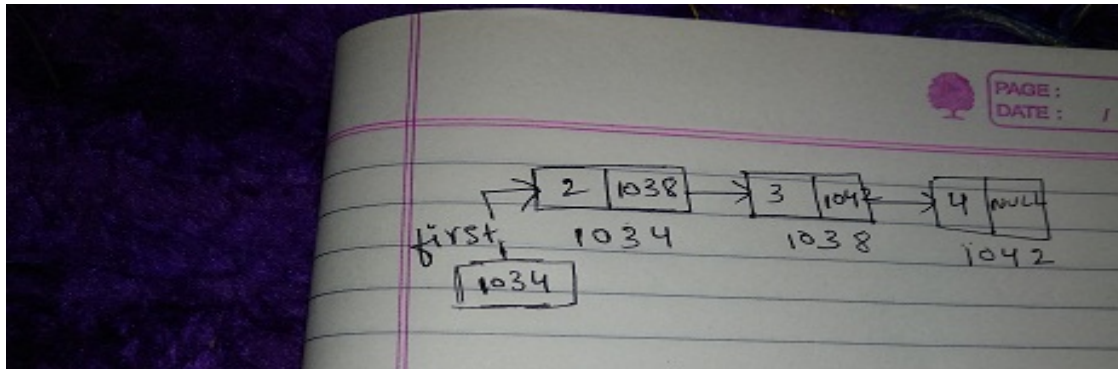 PAGE :
DATE : /
2 1038 3 1042 4 NULL
first 1034 1038 1042
1034